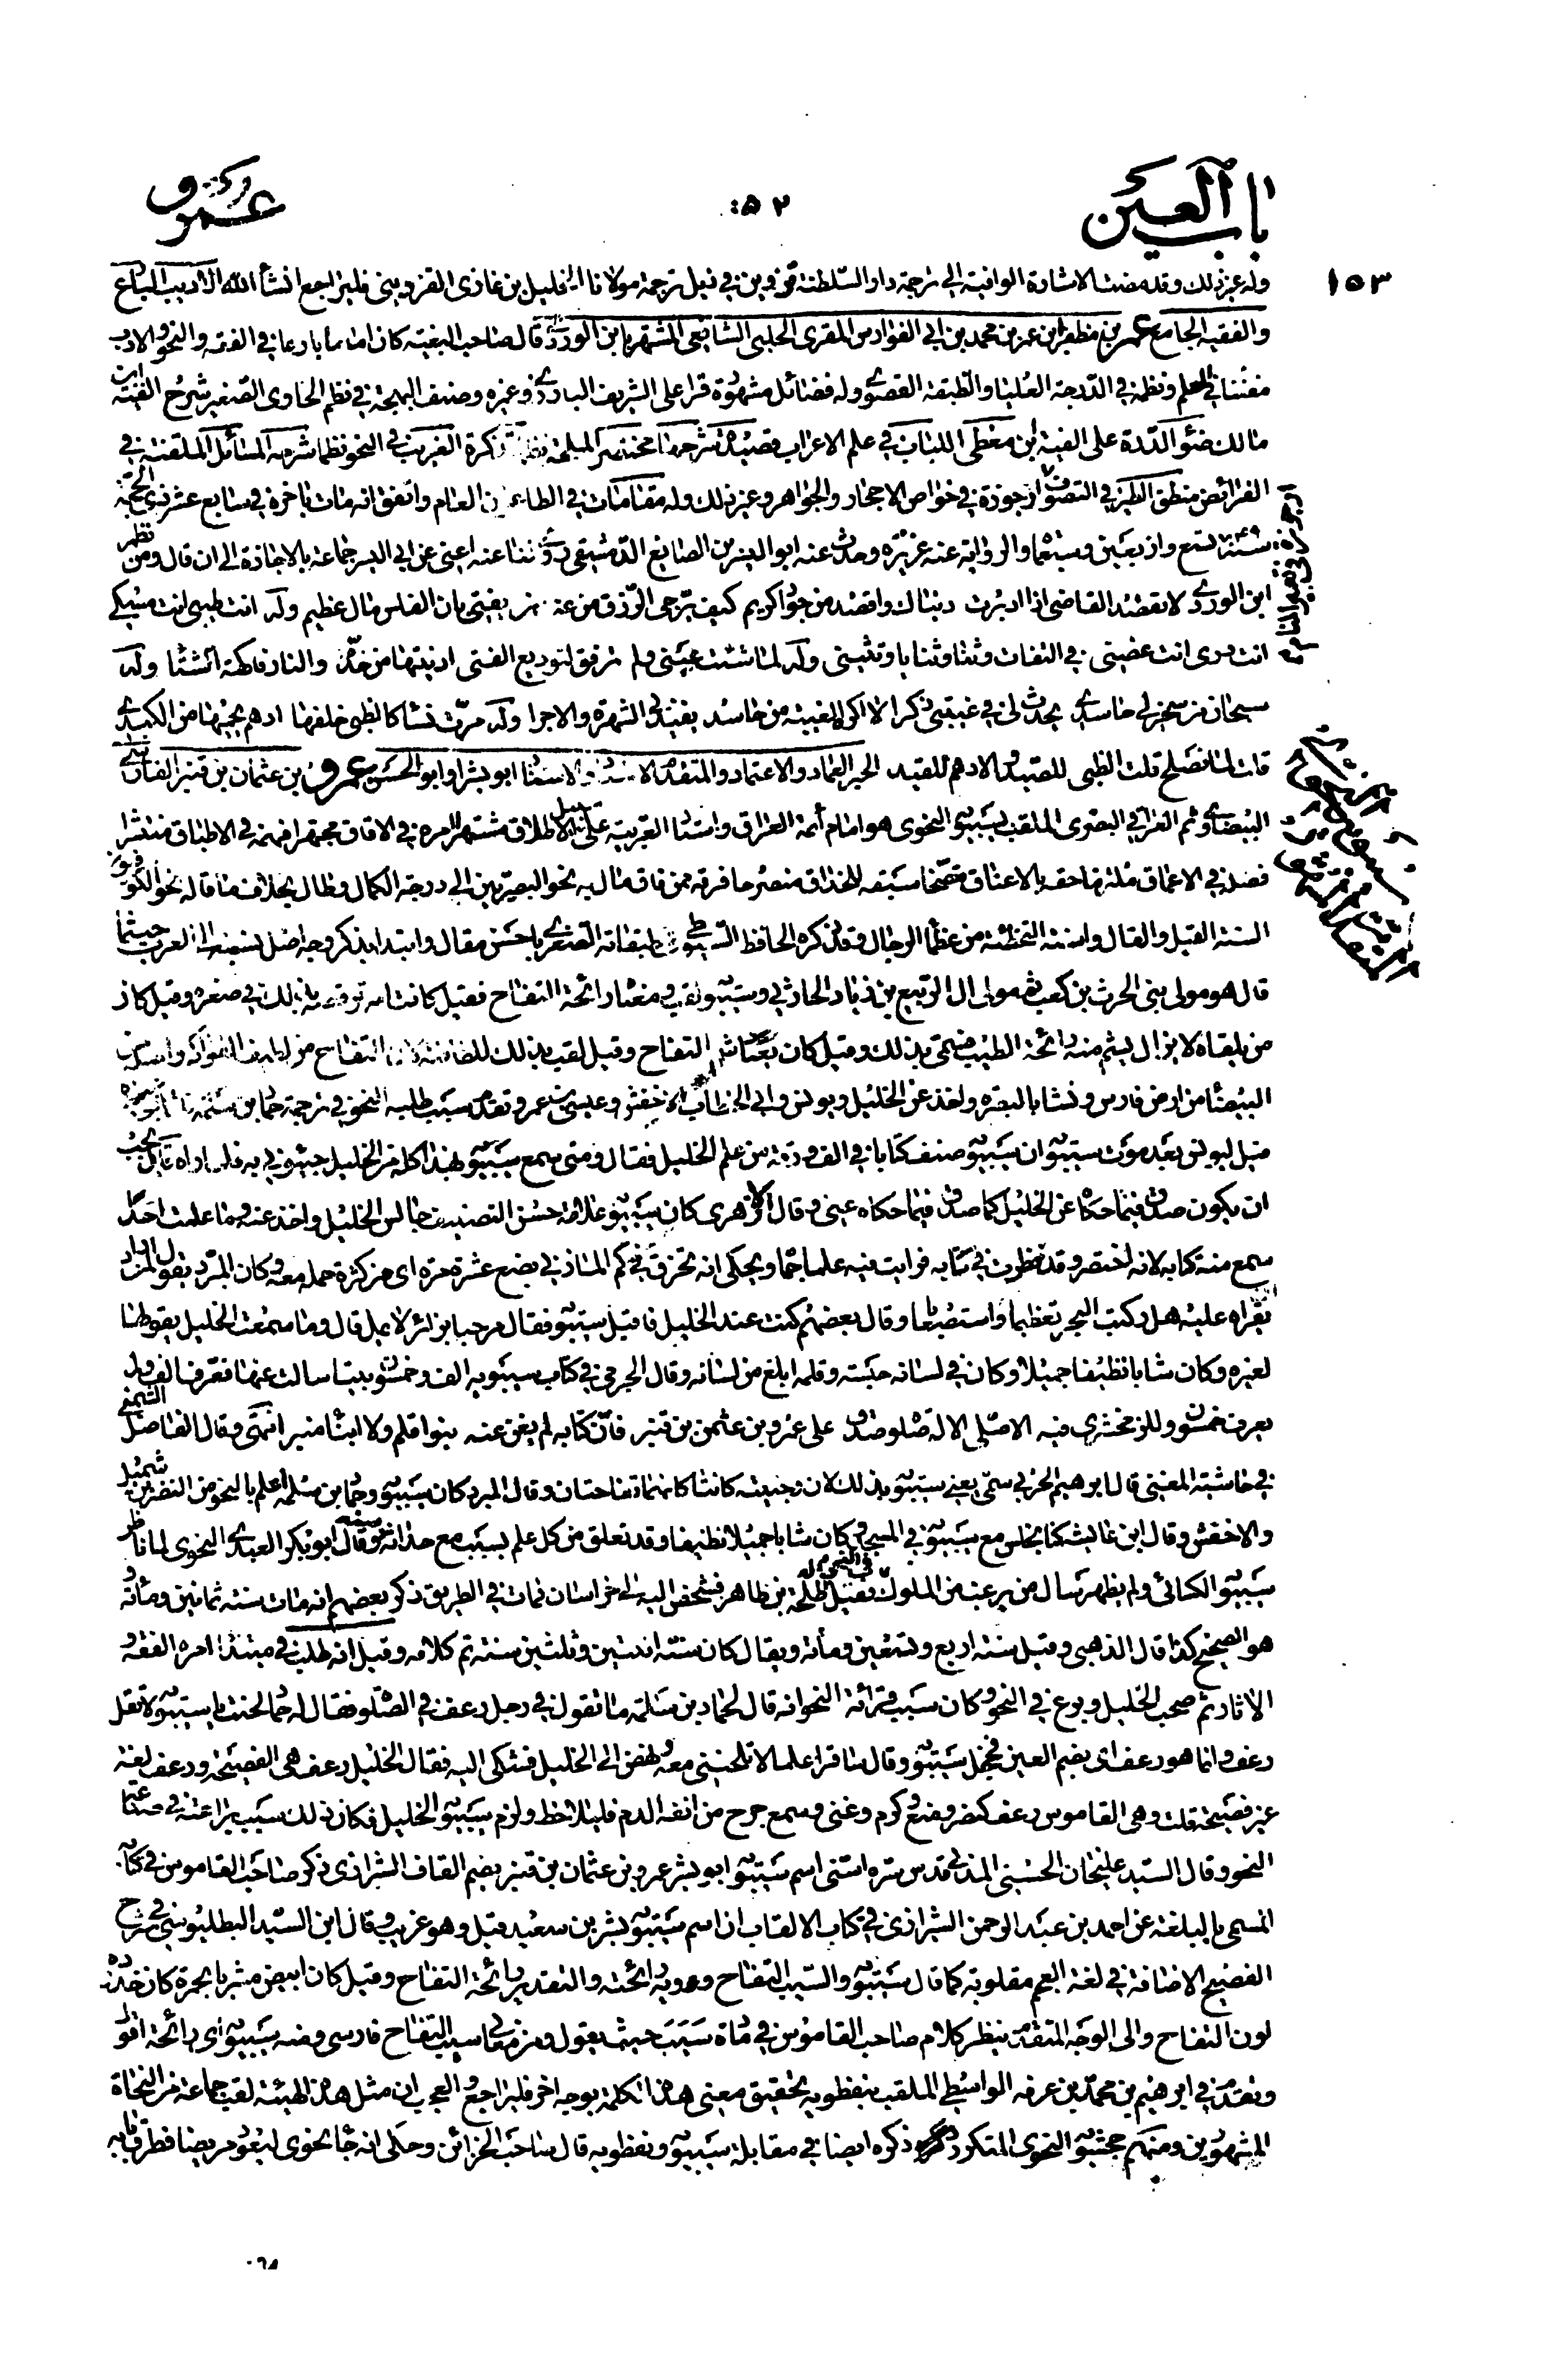 باب العين
٥٢
عمرو
١٥٣
وله غير ذلك وقد مضت الاشارة الوافية الى ترجمة دار السلطنة قزوين في ذيل ترجمة مولانا الخليل بن غازى القزوينى فليراجع انشأ الله الاديب البارع
والفقيه الجامع عمر بن مظفر بن عمر بن محمد بن ابي الفوارس المقرى الحلبى الشافعى المشتهر بابن الوردى قال صاحب البغية كان اماما بارعا في الفقه والنحو والادب
مفننا في العلم ونظمه في الدرجة العليا والطبقة القصوى وله فضائل مشهورة قرا على الشريف البارزى وغيره وصنف البهجة في نظم الحاوى الصغير شرح الفية ابن
مالك ضوء الدرة على الفية ابن معطى اللباب في علم الاعراب قصيدة شرحها مختصر الملحة تذكرة الغريب في النحو نظما شرحه المسائل الملقنة في
الفرائض منطق الطير في التصوف ارجوزة في خواص الاحجار والجواهر وغير ذلك وله مقامات في الطاعون العام واتفق انه مات باخرة في سابع عشر ذى الحجة
سنة تسع واربعين وسبعمائة والرواية عنه عزيزة وحدث عنه ابو اليسر بن الصايغ الدمشقى عنه اعنى عن ابي اليسر جماعة بالاجازة الى ان قال ومن نظم
ابن الوردى لا تقصد القاضى اذا ادبرت دنياك واقصد من جواد كريم كيف ترجى الرزق من عند من يفتى بان الفلس مال عظيم وله انت ظبيى انت مسكى
انت درى انت غصنى في التفات وثنا وثنايا وتثنى وله لما شتت عينى ولم ترفق لتوديع الفتى ادنيتها من خده والنار فاكهة الشتا وله
سبحان من سخر لي حاسدى يحدث لي في غيبتى ذكرا لا اكره الغيبة من حاسد يفيدنى الشهرة والاجرا وله مرت نسا كالظبى خلفها ادهم يحجبها من الكيد
قلت لمن تصلح قلت الظبى للصيد والادهم للقيد الحبر العماد والاعتماد والمتقدم الاستاد ابو بشر او ابو الحسن عمرو بن عثمان بن قنبر الفارسى
البيضاوى ثم العراقى البصرى الملقب بسيبويه النحوى هو امام أئمة العراق واستاد العربية على سبيل الاطلاق مشتهرا امره في الافاق مجتهرا فهمه في الاطباق منتشرا
فضله في الاعماق
السنة القيل والقال واسنة التخطئة من عظماء الرجال وقد ذكره الحافظ السيوطى في طبقاته الصغرى باحسن مقال وابتدا بذكر وجه اصل نسبته الى العرب حيثما
قال هو مولى بنى الحرث بن كعب ثم مولى ال الربيع بن زياد الحارثى وسيبويه لقبه ومعناه رائحة التفاح فقيل كانت امه ترقصه بذلك في صغره وقيل كان
من يلقاه لا يزال يشم منه رائحة الطيب فسمى بذلك وقيل كان يعتاد شم التفاح وقيل لقب بذلك للطافته لان التفاح من لطيف الفواكه واصله من
البيضا من ارض فارس ونشا بالبصره واخذ عن الخليل ويونس وابي الخطاب الاخفش وعيسى بن عمر وتقدم سبب طلبه النحو في ترجمة حماد بن سلمة
قيل ليونس بعد موت سيبويه ان سيبويه صنف كتابا في الف ورقة من علم الخليل فقال ومتى سمع سيبويه هذا كله من الخليل جيئونى به فلما راه قال يجب
ان يكون صدق فيما حكاه عن الخليل كما صدق فيما حكاه عنى وقال الازهرى كان سيبويه علامة حسن التصنيف جالس الخليل واخذ عنه وما علمت احدا
سمع منه كتابه لانه اختصر وقد نظرت في كتابه فرايت فيه علما جما ويحكى انه تخرق في كم المازنى بضع عشرة مرة اى من كثرة حمله معه وكان المبرد يقول لمن اراد ان
يقراه عليه هل ركبت البحر تعظيما واستصعابا وقال بعضهم كنت عند الخليل فاقبل سيبويه فقال مرحبا بزائر لا يمل قال وما سمعت الخليل يقولها
لغيره وكان شابا نظيفا جميلا وكان في لسانه حبسة وقلمه ابلغ من لسانه وقال الجرمى في كتاب سيبويه الف وخمسون بيتا سالت عنها فعرف الف ولم
يعرف خمسون وللزمخشرى فيه الا صلى الاله صلوة صدق على عمرو بن عثمن بن قنبر فان كتابه لم يغن عنه بنوا قلم ولا ابناء منبر انتهى وقال الفاضل الشمنى
في حاشية المغنى قال ابرهيم الحربى سمى يعنى سيبويه بذلك لان وجنتيه كانتا كانهما تفاحتان وقال المبرد كان سيبويه وحماد بن سلمة اعلم بالنحو من النضر بن شميل
والاخفش وقال ابن عايشة كنا نجلس مع سيبويه في المسجد وكان شابا جميلا نظيفا وقد تعلق من كل علم بسبب مع حداثة سنه وقال ابو بكر العبدى النحوى لما ناظر
سيبويه الكسائى ولم يظهر سال من يرغب من الملوك في النحو فقيل له طلحة بن طاهر فشخص اليه الى خراسان فمات في الطريق ذكر بعضهم انه مات سنة ثمانين ومأة و
هو الصحيح كذا قال الذهبى وقيل سنة اربع وتسعين ومأة ويقال كان سنه اثنتين وثلثين سنة تم كلامه وقيل انه طلب في مبتدا امره الفقه و
الاثار ثم صحب الخليل وبرع في النحو وكان سبب قرائة النحو انه قال لحماد بن سلمة ما تقول في رجل رعف في الصلوة فقال له حماد لحنت يا سيبويه لا تقل
رعف وانما هو رعف اى بضم العين فخجل سيبويه وقال ساقرا علما لا تلحننى معه ونهض الى الخليل فشكى اليه فقال الخليل رعف هى الفصيحة ورعف لغة
غير فصيحة قلت وفى القاموس رعف كنصر ومنع وكرم وعنى وسمع خرج من انفه الدم فليلاحظ ولزم سيبويه الخليل فكان ذلك سبب براعته في صناعة
النحو وقال السيد عليخان الحسينى المدنى قدس سره السنى اسم سيبويه ابو بشر عمرو بن عثمان بن قنبر بضم القاف الشيرازى ذكر صاحب القاموس في كتابه
المسمى بالبلغة عن احمد بن عبد الرحمن الشيرازى في كتاب الالقاب ان اسم سيبويه بشر بن سعيد قيل وهو غريب وقال ابن السيد البطليوسى في شرح
الفصيح الاضافة في لغة العجم مقلوبة كما قال سيبويه والسيب التفاح وويه رائحته والتقدير رائحة التفاح وقيل كان ابيض مشربا بحمرة كان خده
لون التفاح والى الوجه المتقدم ينظر كلام صاحب القاموس في مادة سيب حيث يقول ومن معانى سيب التفاح فارسى ومنه سيبويه اى رائحة اقول
وتقدم في ابرهيم بن محمد بن عرفه الواسطى الملقب بنفطويه تحقيق معنى هذا الكلمة بوجه اخر فليراجع والعجب ان مثل هذا الهيئة لقب جماعة من النحاة
المشهورين ومنهم النحوى المتكرر ذكره ايضا في مقابلة سيبويه ونفطويه قال صاحب الخزائن وحكى انه جاء نحوى ليعود مريضا فطرق بابه